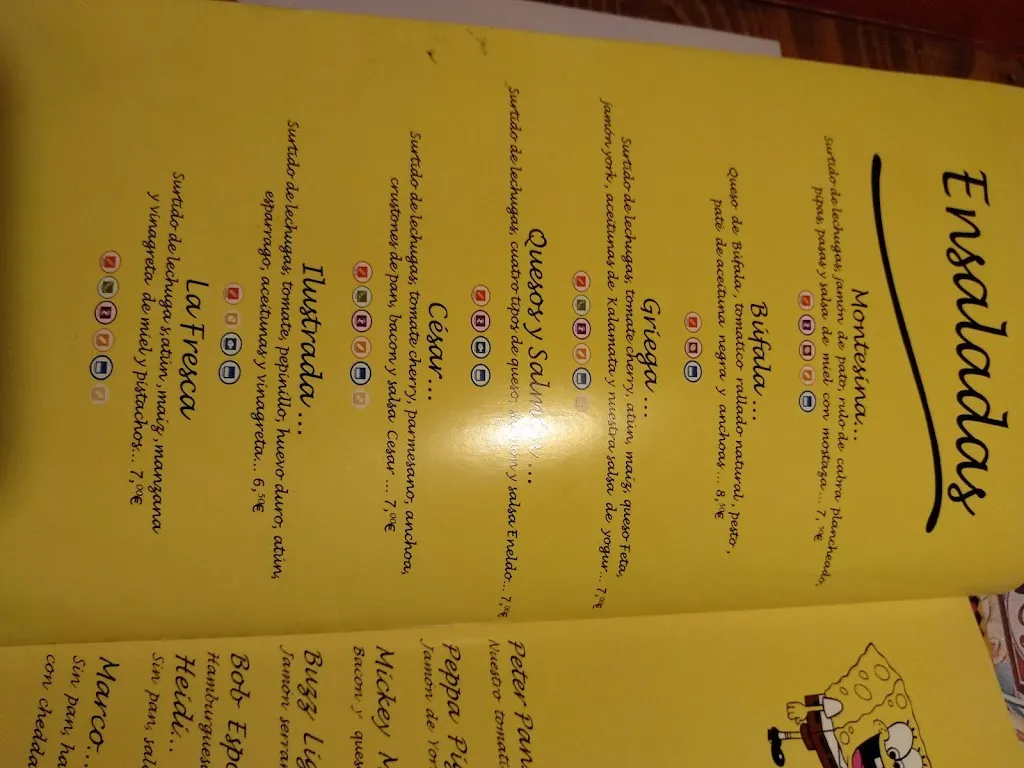 Ensaladas
Montesina...
Surtido de lechugas, jamón de pato, rulo de cabra plancheado,
pipas, pasas y salsa de miel con mostaza... 7,50€
Búfala...
Queso de Búfala, tomatico rallado natural, pesto,
paté de aceituna negra y anchoas... 8,50€
Griega...
Surtido de lechugas, tomate cherry, atún, maíz, queso Feta,
jamón york, aceitunas de Kalamata y nuestra salsa de yogur... 7,00€
Quesos y Salmón...
Surtido de lechugas, cuatro tipos de queso, y salsa Eneldo... 7,00€
César...
Surtido de lechugas, tomate cherry, parmesano, anchoa,
crustones de pan, bacon y salsa César... 7,00€
Ilustrada...
Surtido de lechugas, tomate, pepinillo, huevo duro, atún,
esparrago, aceitunas y vinagreta... 6,50€
La Fresca
Surtido de lechugas atún, maíz, manzana
y vinagreta de miel y pistachos... 7,00€
Peter Pan
Nuestro
Peppa Pig
Jamón de
Mickey M
Bacon y
Buzz Lig
Jamón
Bob Espo
Hamburgues
Heidi...
Sin pan,
Marco...
Sin pan,
con